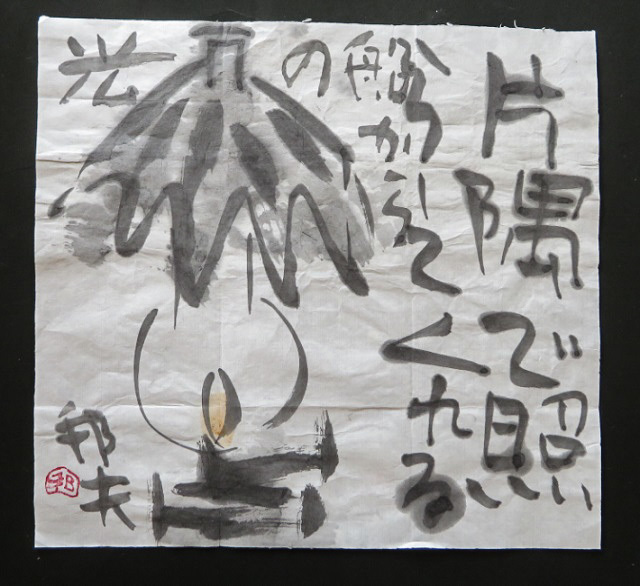 片隅で照
らしてくれる
か
の
光
邦夫